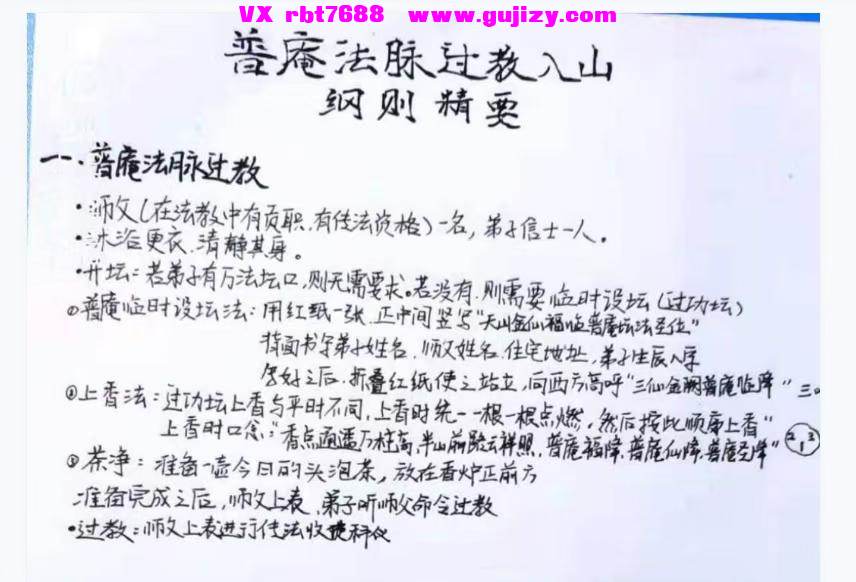 VX rbt7688 www.gujizy.com
普庵法脉过教入山
纲则精要
一、普庵法脉过教
·师父(在法教中有贡职、有传法资格)一名,弟子信士一人。
·沐浴更衣、清静其身。
·开坛:若弟子有万法坛口,则无需要求。若没有、则需要临时设坛(过功坛)
①普庵临时设坛法:用红纸一张、正中间竖写"天山金仙福临普庵坛法圣位"
背面书写弟子姓名、师父姓名、住宅地址、弟子生辰八字
写好之后、折叠红纸使之站立、向西方高呼"三仙金阙普庵临降" 三
②上香法:过功坛上香与平时不同、上香时统一一根一根点燃、然后按此顺序上香"
上香时口念:"香点通透万柱高、半山前路云祥照、普庵福降、普庵仙降、普庵圣降" 2 1 3
③茶净:准备一壶今日的头泡茶,放在香炉正前方
准备完成之后,师父上表、弟子听师父命令过教
·过教:师父上表进行传法收科仪